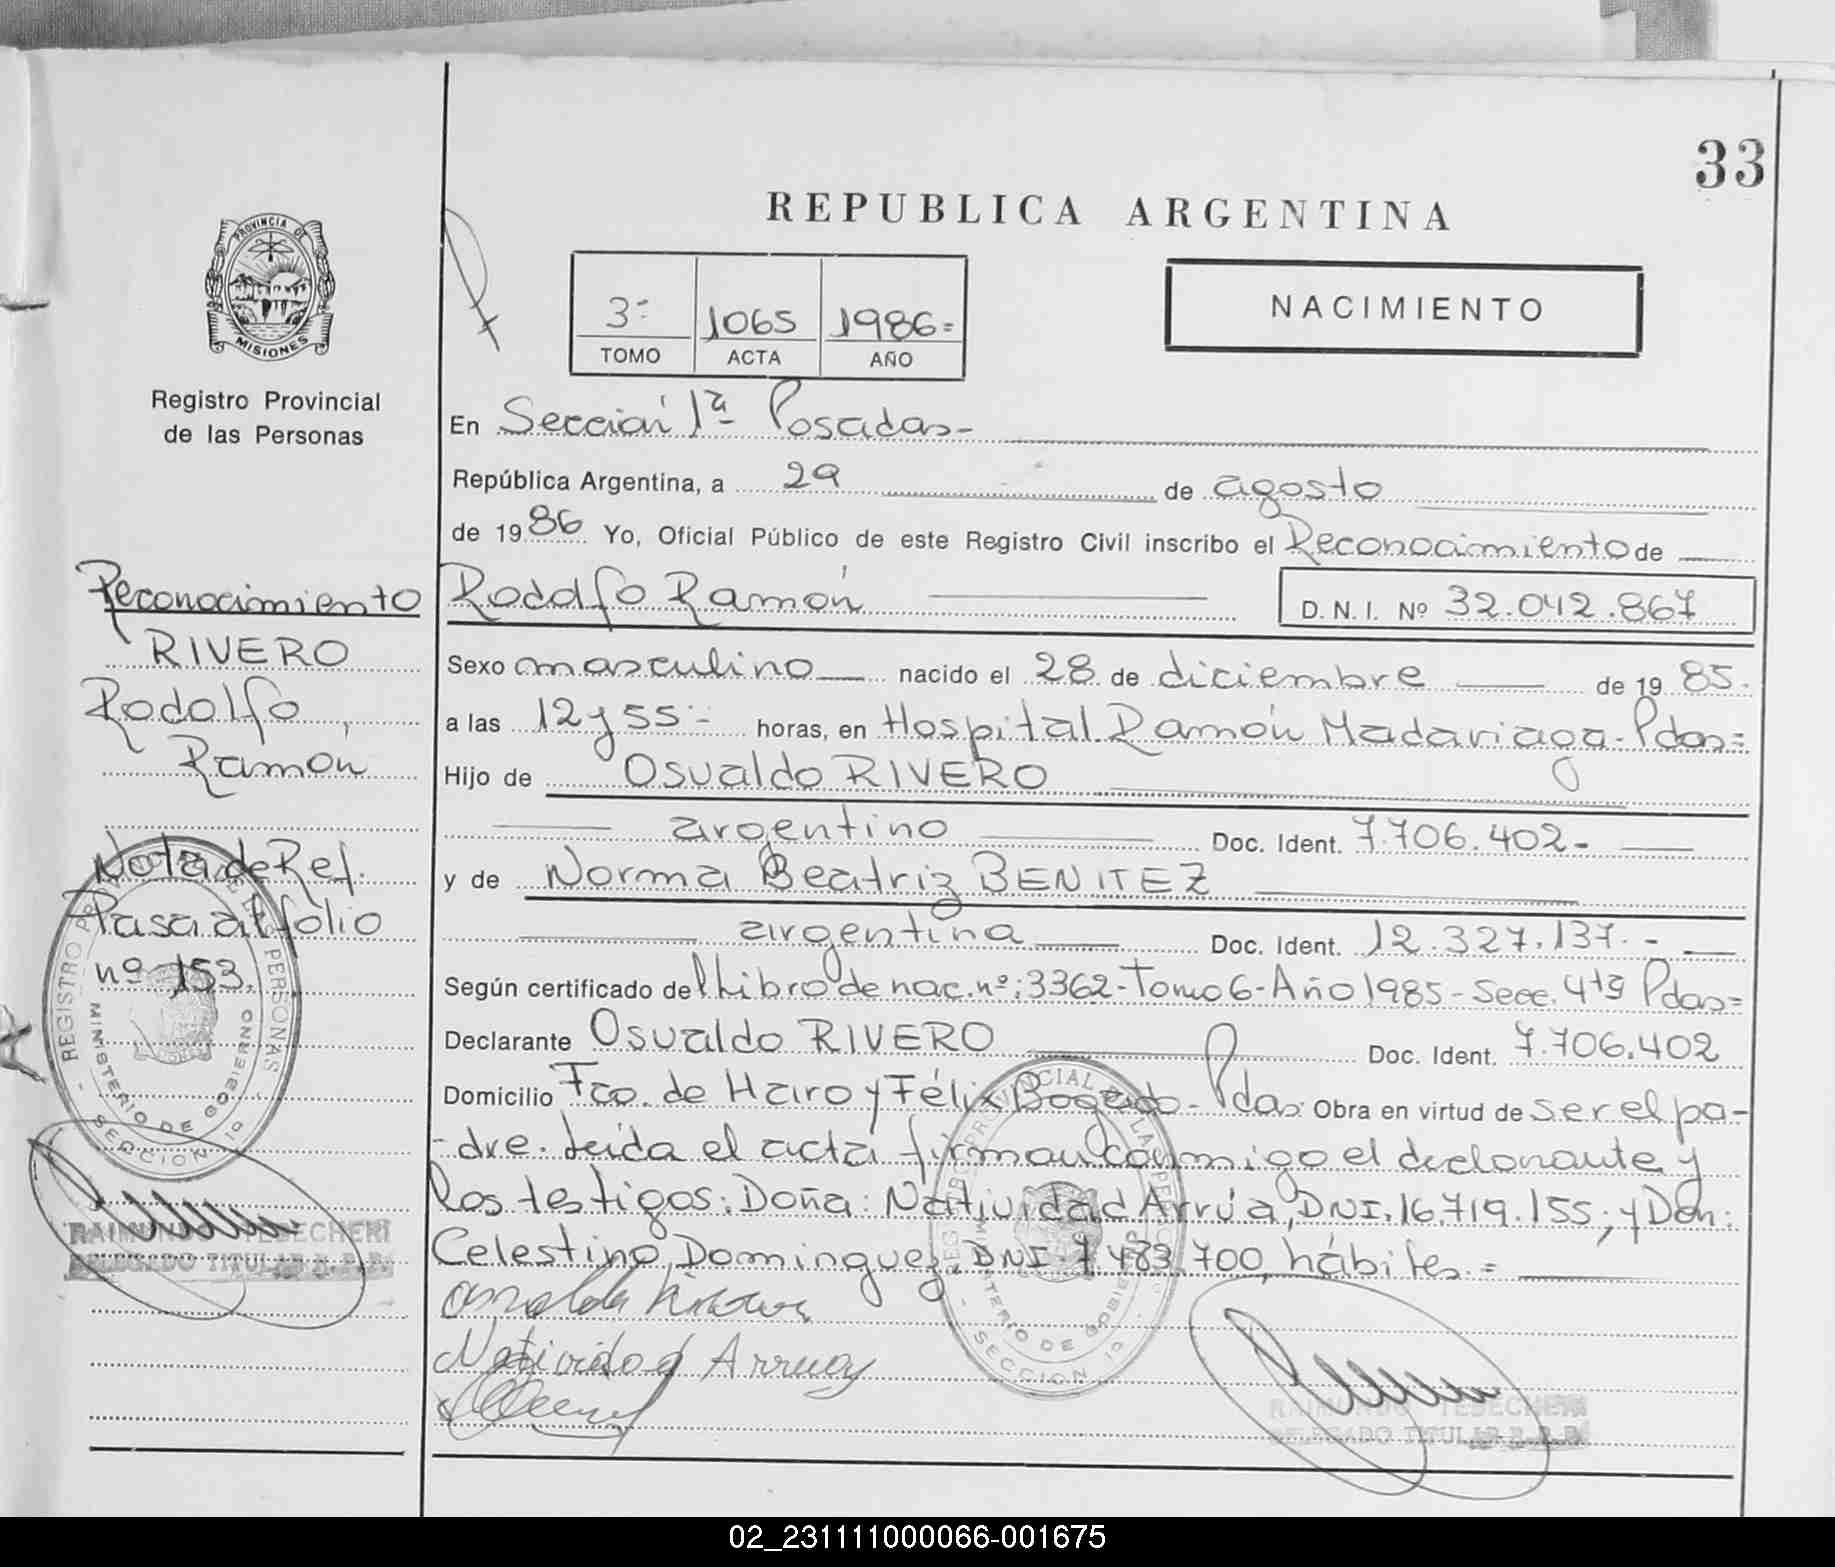 33
REPUBLICA ARGENTINA
PROVINCIA DE
MISIONES
Registro Provincial
de las Personas
3º 1065 1986=
TOMO ACTA AÑO
NACIMIENTO
En Sección 1ª Posadas-
República Argentina, a 29 de agosto
de 1986 Yo, Oficial Público de este Registro Civil inscribo el Reconocimiento de
Rodolfo Ramón D.N.I. Nº 32.042.867
Sexo masculino nacido el 28 de diciembre de 1985.
a las 12 y 55= horas, en Hospital Ramón Madariaga-Pdas=
Hijo de Osvaldo RIVERO
argentino Doc. Ident. 7.706.402-
y de Norma Beatriz BENITEZ
argentina Doc. Ident. 12.327.137.-
Según certificado del Libro de nac. nº: 3362-Tomo 6-Año 1985-Secc. 4ta Pdas=
Declarante Osvaldo RIVERO Doc. Ident. 7.706.402
Domicilio Fco. de Haro y Félix Bogado-Pdas. Obra en virtud de ser el pa-
-dre. Leída el acta firman conmigo el declarante y
los testigos: Doña: Natividad Arrúa, DNI. 16.719.155; y Don:
Celestino Dominguez, DNI 7.483.700, hábiles.=
Natividad Arruay
RAIMUNDO TEBECHERI
DELEGADO TITULAR R.P.P.
Reconocimiento
RIVERO
Rodolfo,
Ramón
Nota de Ref.
Pasa al folio
nº 153.
REGISTRO PROVINCIAL DE LAS PERSONAS
MINISTERIO DE GOBIERNO
SECCION 1º
RAIMUNDO TEBECHERI
DELEGADO TITULAR R.P.P.
REGISTRO PROVINCIAL DE LAS PERSONAS
MINISTERIO DE GOBIERNO
SECCION 1º
02_231111000066-001675